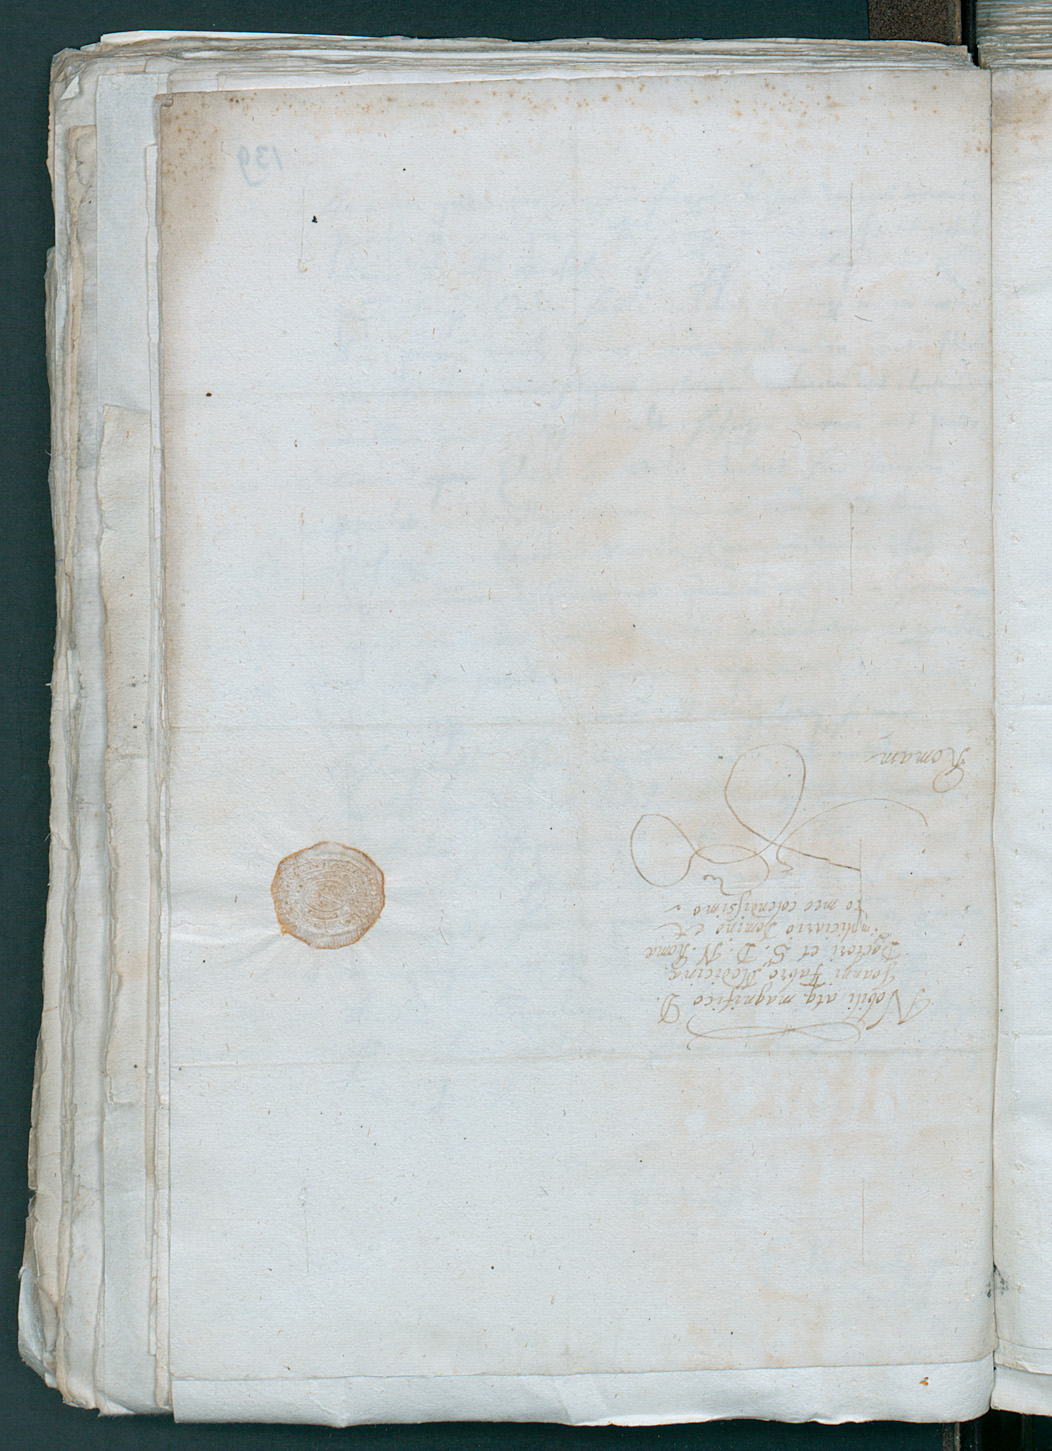 Nobili atq. magnifico D.
Joanni Fabro Medicinę
Doctori et S. D. N. Roma
Simpliciario Domino et
ro meo colendissimo
Romam
139